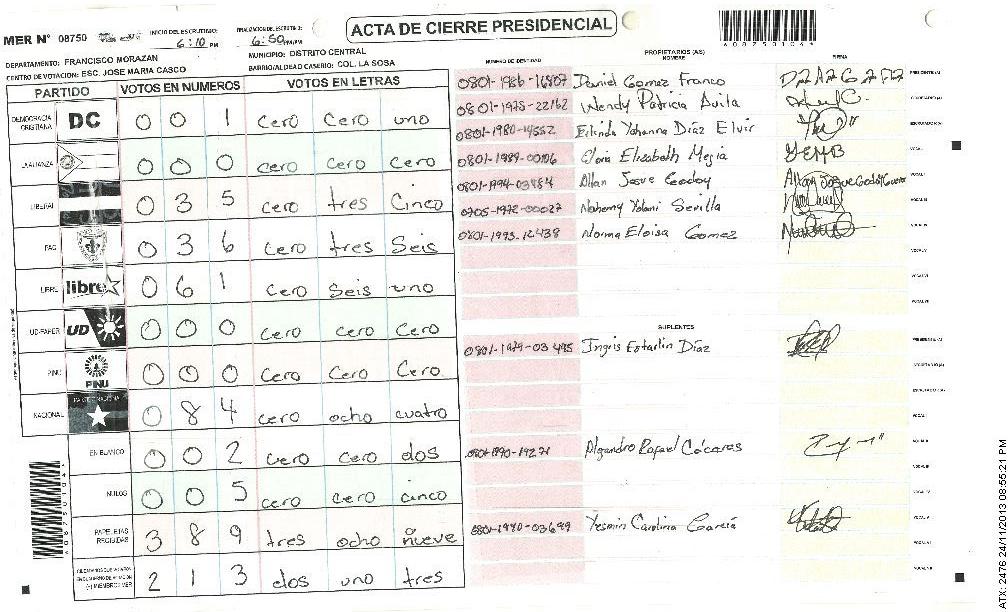 ACTA DE CIERRE PRESIDENCIAL
MER N° 08750
INICIO DEL ESCRUTINIO: 6:10 PM
FINALIZACION DE ESCRUTINIO: 6:50 PM
6087501064
DEPARTAMENTO: FRANCISCO MORAZAN
MUNICIPIO: DISTRITO CENTRAL
CENTRO DE VOTACION: ESC. JOSE MARIA CASCO
BARRIO/ALDEA/CASERIO: COL. LA SOSA
PARTIDO VOTOS EN NUMEROS VOTOS EN LETRAS
DEMOCRACIA CRISTIANA DC 0 0 1 cero cero uno
0 0 0 cero cero cero
LIBERAL 0 3 5 cero tres cinco
PAC 0 3 6 cero tres seis
LIBRE libre 0 6 1 cero seis uno
UD-FAPER UD 0 0 0 cero cero cero
PINU PINU 0 0 0 cero cero cero
NACIONAL 0 8 4 cero ocho cuatro
EN BLANCO 0 0 2 cero cero dos
NULOS 0 0 5 cero cero cinco
PAPELETAS RECIBIDAS 3 8 9 tres ocho nueve
2 1 3 dos uno tres
NUMERO DE IDENTIDAD
PROPIETARIOS (AS)
NOMBRE
FIRMA
0801-1986-16807 Daniel Gomez Franco PRESIDENTE(A)
0801-1975-22162 Wendy Patricia Avila SECRETARIO (A)
0801-1980-14552 Erlinda Yohanna Díaz Elvir ESCRUTADOR (A)
0801-1989-00106 Gloria Elizabeth Mejia VOCAL I
0801-1994-03884 Allan Josue Godoy
0705-1972-00027 Nohemy Yolani Sevilla
0801-1993-12438 Norma Eloisa Gomez
SUPLENTES
0801-1979-03495 Ingris Estarlin Díaz PRESIDENTE(A)
SECRETARIO (A)
ESCRUTADOR (A)
0801-1990-19271 Alejandro Rafael Cáceres
0801-1980-03699 Yesmin Carolina García
6087501064
ATX: 2476 24/11/2013 08:55:21 PM